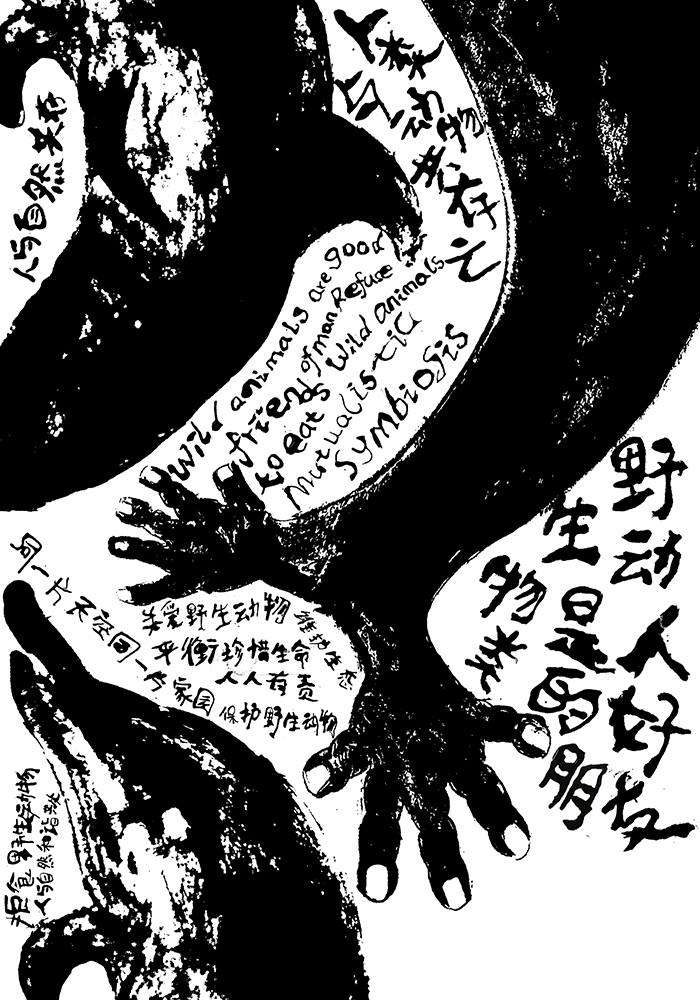 人类与动物共存亡
人与自然共存
Wild animals are good
friend of man Refuse
to eats Wild animals
Mutualistic
Symbiosis
野生动物是人类的好朋友
同一片天空同一片家园
关爱野生动物 维护生态
平衡 珍惜生命
人人有责
保护野生动物
拒食野生动物
人与自然和谐